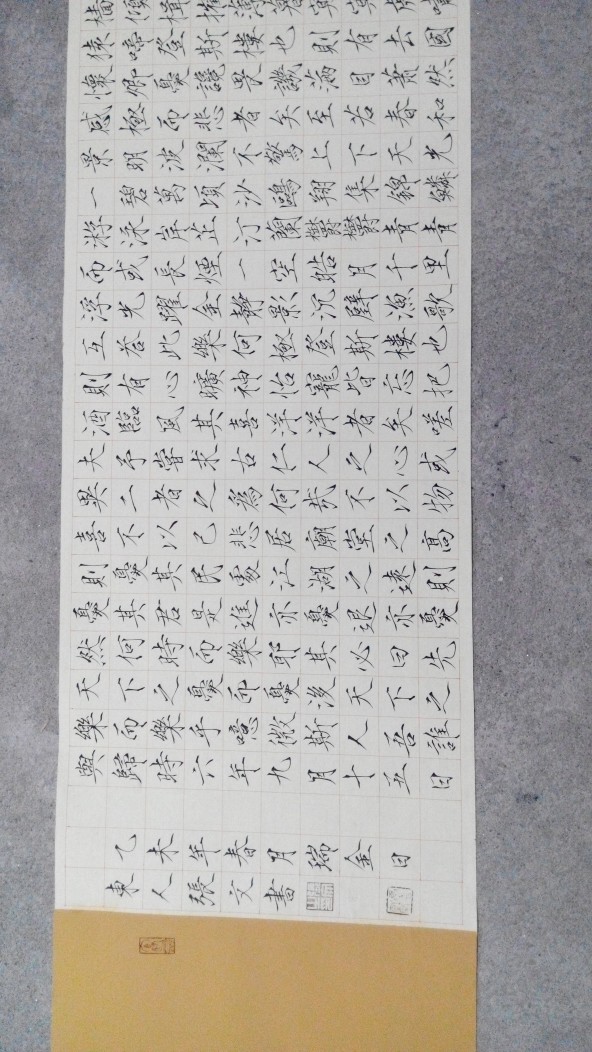 檣傾楫摧薄暮冥冥虎嘯
猿啼登斯樓也則有去國
懷鄉憂讒畏譏滿目蕭然
感極而悲者矣至若春和
景明波瀾不驚上下天光
一碧萬頃沙鷗翔集錦鱗
游泳岸芷汀蘭鬱鬱青青
而或長煙一空皓月千里
浮光躍金靜影沉璧漁歌
互答此樂何極登斯樓也
則有心曠神怡寵皆忘把
酒臨風其喜洋洋者矣嗟
夫予嘗求古仁人之心或
異二者之為何哉不以物
喜不以己悲居廟堂之高
則憂其民處江湖之遠則
憂其君是進亦憂退亦憂
然何時而樂耶其必曰先
天下之憂而憂後天下之
樂而樂乎噫微斯人吾誰
與歸時六年九月十五日
乙未年春月瑞金日
東人張文書